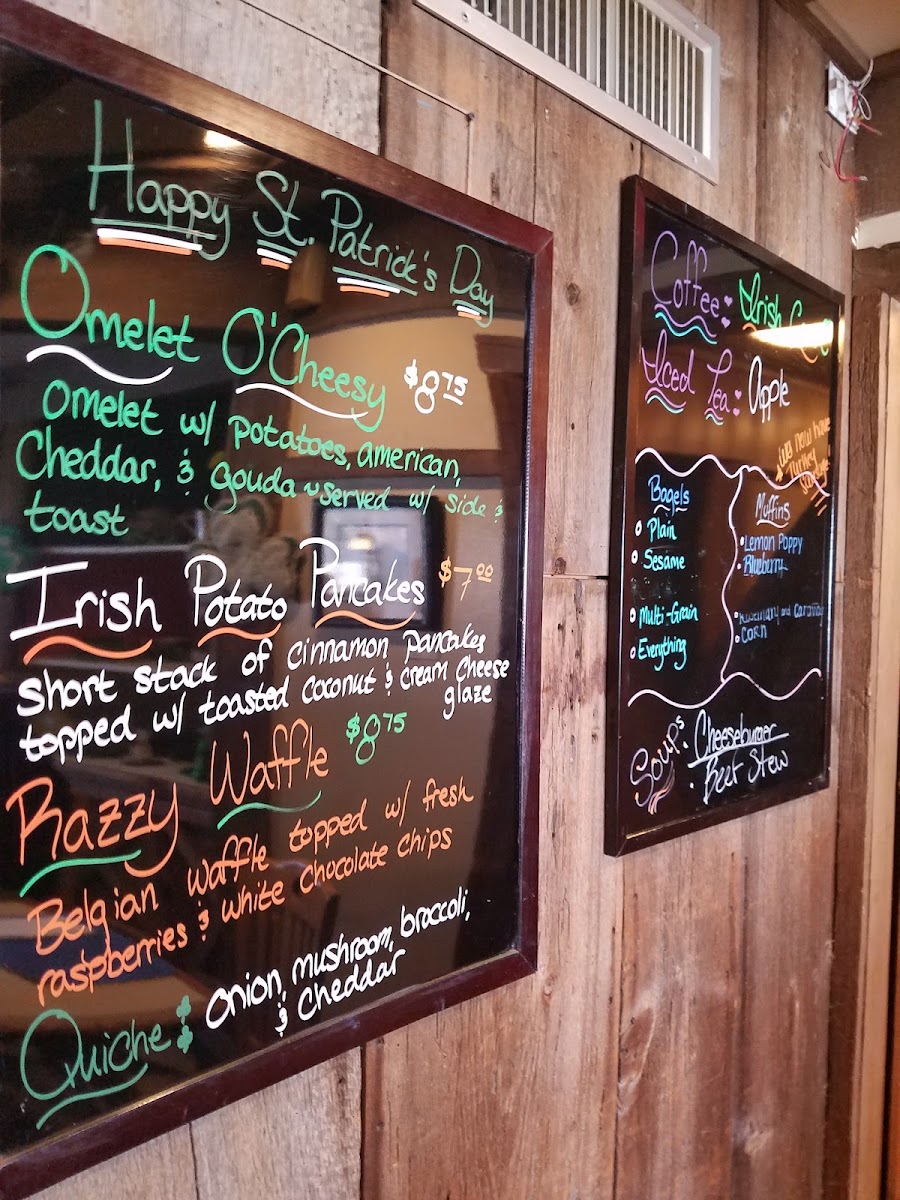 Happy St. Patrick's Day
Omelet O'Cheesy $8.75
Omelet w/ potatoes, american,
Cheddar, & gouda ~ served w/ side &
toast
Irish Potato Pancakes $7.00
Short stack of cinnamon pancakes
topped w/ toasted coconut & cream cheese
glaze
Razzy Waffle $8.75
Belgian waffle topped w/ fresh
raspberries & white chocolate chips
Quiche: onion, mushroom, broccoli,
& cheddar
Coffee: Irish
Iced Tea: Apple
we now have
Turkey
Bagels
Plain
Sesame
Multi-Grain
Everything
Muffins
Lemon Poppy
Blueberry
Rosemary and
Corn
Soups
Cheeseburger
Beef Stew